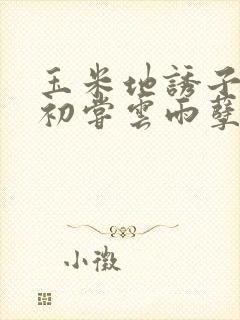 玉米地誘子
初嘗雲雨孽
小微